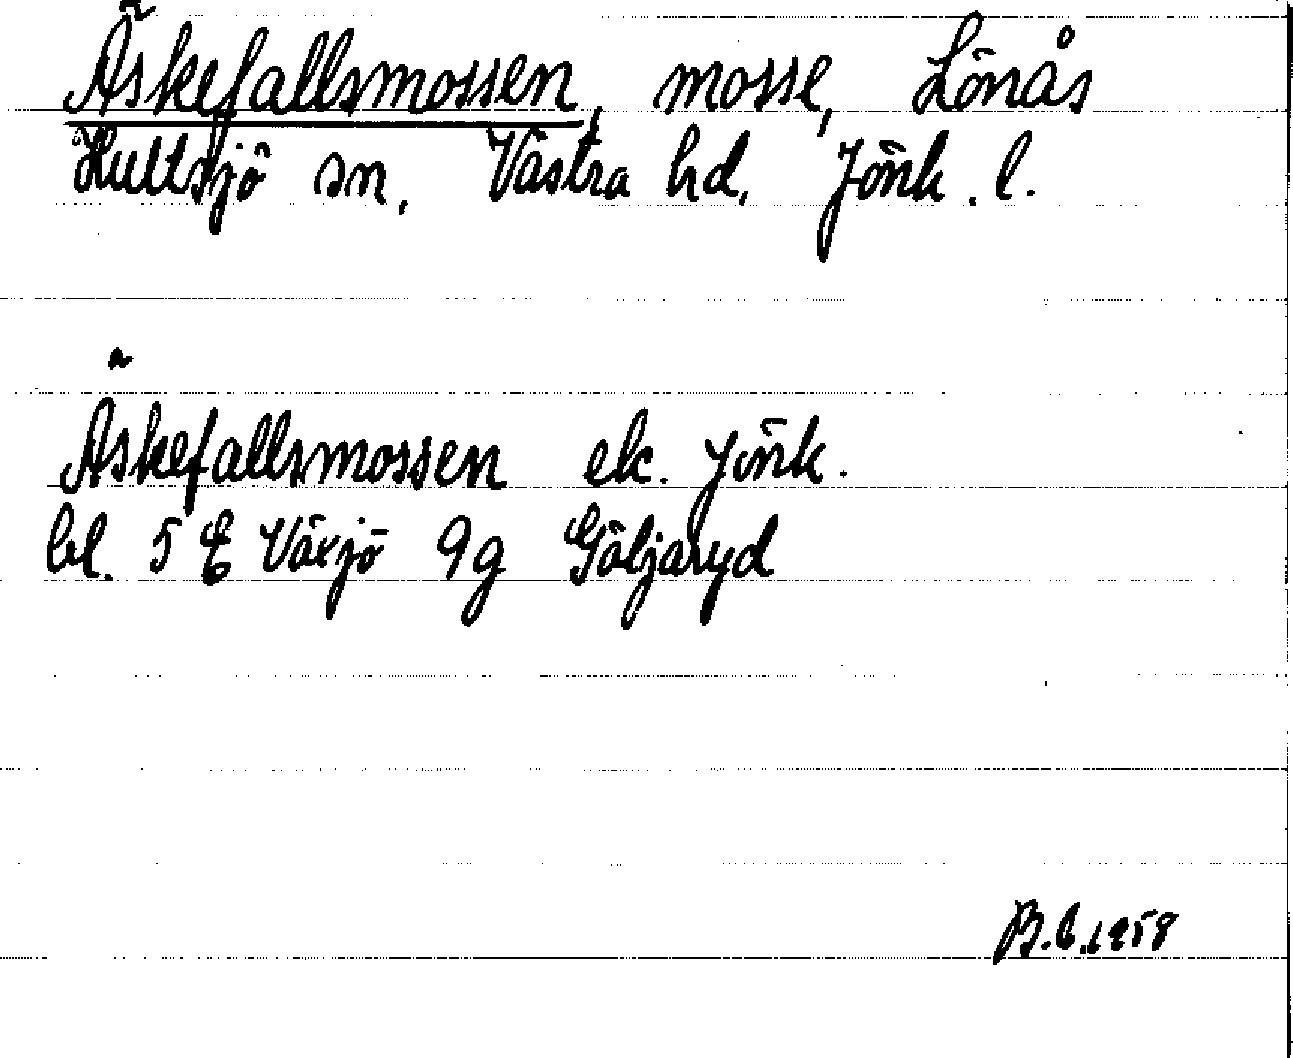 Äskefallsmossen, mosse, Lönås
Hultsjö sn, Västra hd, Jönk. l.
Äskefallsmossen ek. Jönk.
bl. 5 E Växjö 9g Göljaryd
B.E. 1958